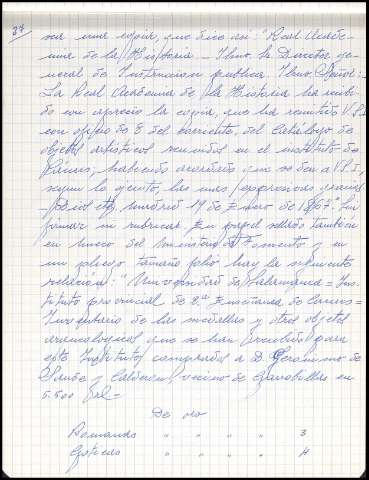 37
sea una copia, que dice así: "Real Acade-
mia de la Historia.- Ilmo. Sr. Director ge-
neral de Instruccion publica. Ilmo. Señor:
La Real Academia de la Historia ha recibi-
do con aprecio la copia, que ha remitido V.S.I.
con oficio de 3 del corriente, del Catalogo de
objetos artisticos reunidos en el instituto de
Cáceres, habiendo acordado que se den a V.S.I.,
segun lo ejecuto, las mas expresivas gracias
Dios etc. Madrid 19 de Enero de 1867. Sin
firmar ni rubricar. En papel sellado tambien
en hueco del Ministerio de Fomento y en
un pliego tamaño folio hay la siguiente
relación: "Universidad de Salamanca = Ins-
tituto provincial de 2ª Enseñanza de Caceres =
Inventario de las medallas y otros objetos
arqueologicos que se han recibido para
este Instituto, comprados a D. Geronimo de
Sande y Calderon, vecino de Garrobillas en
5.500
De oro
Romanas " " " " 3
Goticas " " " " 4